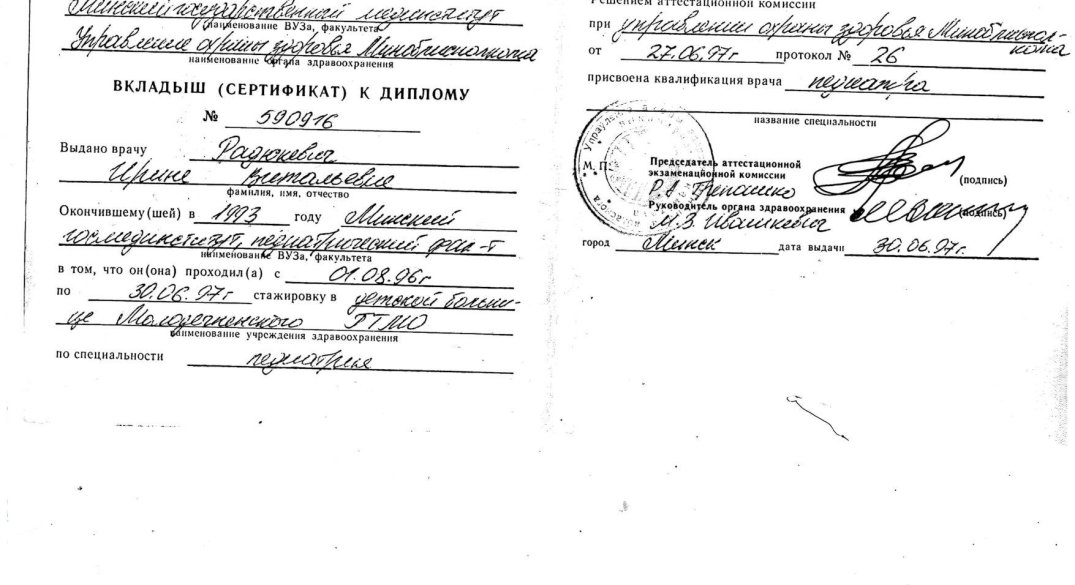 Минский государственный мединститут
наименование ВУЗа, факультета
Управление охраны здоровья Миноблисполкома
наименование органа здравоохранения
ВКЛАДЫШ (СЕРТИФИКАТ) К ДИПЛОМУ
№ 590916
Выдано врачу Радюкевич
Ирине Витальевне
фамилия, имя, отчество
Окончившему(шей) в 1993 году Минский
госмединститут, педиатрический фак-т
наименование ВУЗа, факультета
в том, что он(она) проходил(а) с 01.08.96г
по 30.06.97г стажировку в детской больни-
це Молодечненского ТМО
наименование учреждения здравоохранения
по специальности педиатрия
Решением аттестационной комиссии
при управлении охраны здоровья Миноблиспол-
кома
от 27.06.97г протокол № 26
присвоена квалификация врача педиатра
название специальности
М. П.
Председатель аттестационной
экзаменационной комиссии (подпись)
Р.А. Трепашко
Руководитель органа здравоохранения (подпись)
М.З. Ивашкевич
город Минск дата выдачи 30.06.97г.